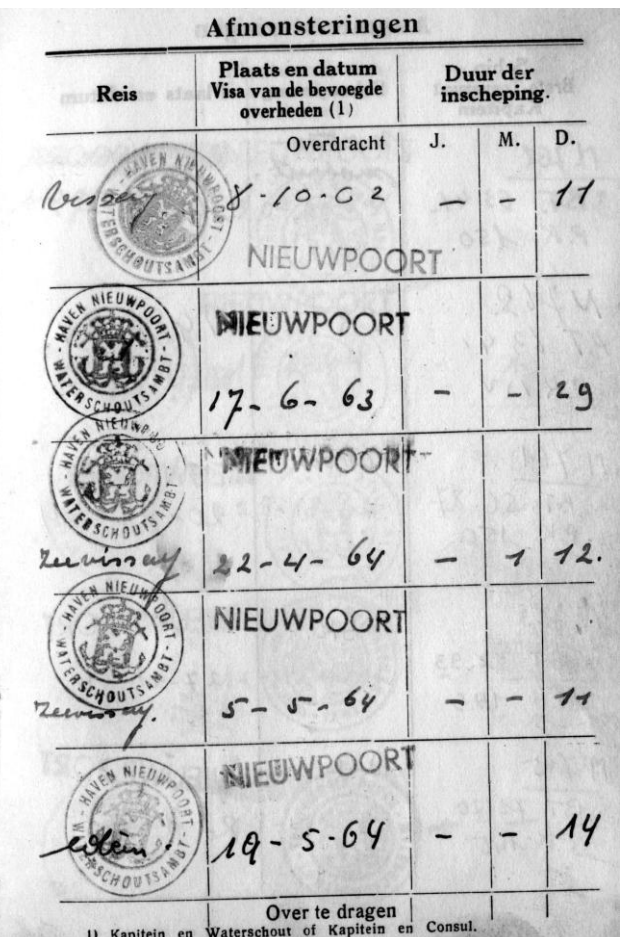 Afmonsteringen
Reis
Plaats en datum
Visa van de bevoegde
overheden (1)
Duur der
inscheping.
Overdracht J. M. D.
HAVEN NIEUWPOORT - WATERSCHOUTSAMBT -
8-10-62 - - 11
NIEUWPOORT
HAVEN NIEUWPOORT - WATERSCHOUTSAMBT -
NIEUWPOORT
17-6-63 - - 29
HAVEN NIEUWPOORT - WATERSCHOUTSAMBT -
NIEUWPOORT
22-4-64 - 1 12.
HAVEN NIEUWPOORT - WATERSCHOUTSAMBT -
NIEUWPOORT
5-5-64 - - 11
HAVEN NIEUWPOORT - WATERSCHOUTSAMBT -
NIEUWPOORT
19-5-64 - - 14
Over te dragen
1) Kapitein en Waterschout of Kapitein en Consul.